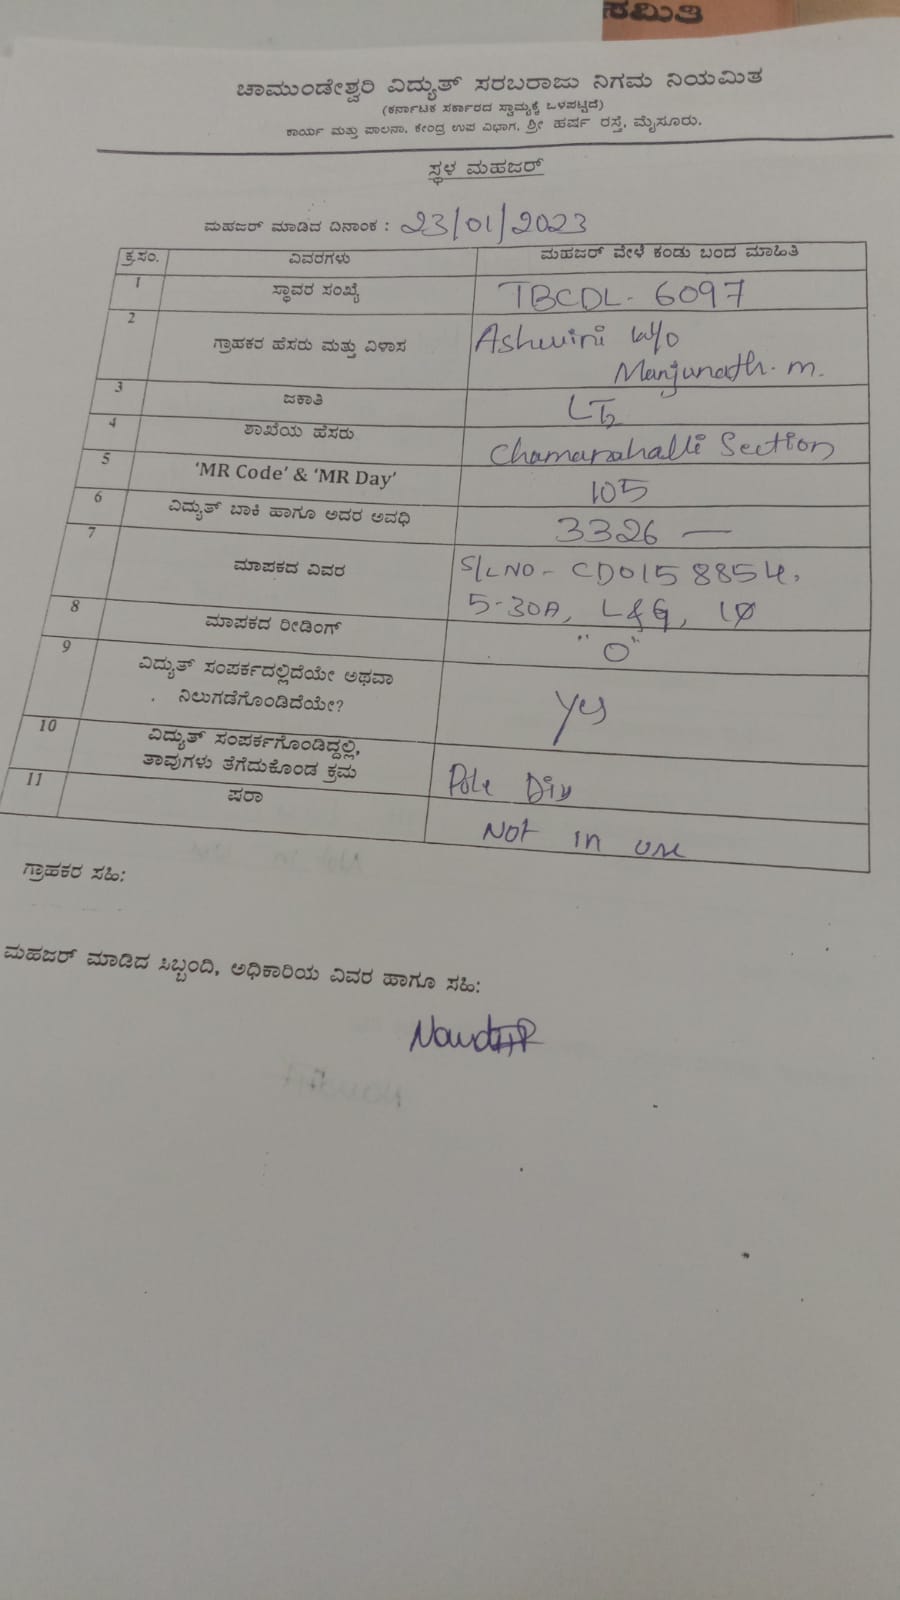 ಸಮಿತಿ
ಚಾಮುಂಡೇಶ್ವರಿ ವಿದ್ಯುತ್ ಸರಬರಾಜು ನಿಗಮ ನಿಯಮಿತ
(ಕರ್ನಾಟಕ ಸರ್ಕಾರದ ಸ್ವಾಮ್ಯಕ್ಕೆ ಒಳಪಟ್ಟಿದೆ)
ಕಾರ್ಯ ಮತ್ತು ಪಾಲನಾ, ಕೇಂದ್ರ ಉಪ ವಿಭಾಗ, ಶ್ರೀ ಹರ್ಷ ರಸ್ತೆ, ಮೈಸೂರು.
ಸ್ಥಳ ಮಹಜರ್
ಮಹಜರ್ ಮಾಡಿದ ದಿನಾಂಕ : 23/01/2023
ಕ್ರ.ಸಂ. ವಿವರಗಳು ಮಹಜರ್ ವೇಳೆ ಕಂಡು ಬಂದ ಮಾಹಿತಿ
1 ಸ್ಥಾವರ ಸಂಖ್ಯೆ TBCDL- 6097
2 ಗ್ರಾಹಕರ ಹೆಸರು ಮತ್ತು ವಿಳಾಸ Ashwini W/o
Manjunath. m.
3 ಜಕಾತಿ LT2
4 ಶಾಖೆಯ ಹೆಸರು Chamarahalli Section
5 'MR Code' & 'MR Day' 105
6 ವಿದ್ಯುತ್ ಬಾಕಿ ಹಾಗೂ ಅದರ ಅವಧಿ 3326 —
7 ಮಾಪಕದ ವಿವರ S/L NO - CD0158854,
5-30A, L&G, 1Ø
8 ಮಾಪಕದ ರೀಡಿಂಗ್ "0"
9 ವಿದ್ಯುತ್ ಸಂಪರ್ಕದಲ್ಲಿದೆಯೇ ಅಥವಾ
ನಿಲುಗಡೆಗೊಂಡಿದೆಯೇ? Yes
10 ವಿದ್ಯುತ್ ಸಂಪರ್ಕಗೊಂಡಿದ್ದಲ್ಲಿ,
ತಾವುಗಳು ತೆಗೆದುಕೊಂಡ ಕ್ರಮ Pole Dis
11 ಷರಾ Not in use
ಗ್ರಾಹಕರ ಸಹಿ:
ಮಹಜರ್ ಮಾಡಿದ ಸಿಬ್ಬಂದಿ, ಅಧಿಕಾರಿಯ ವಿವರ ಹಾಗೂ ಸಹಿ: